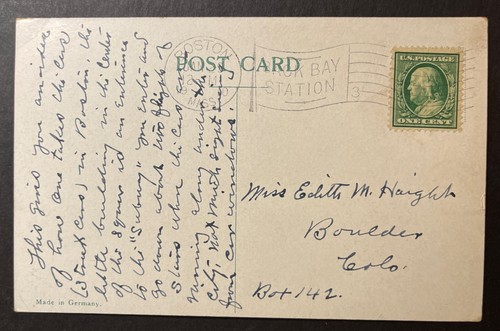 BOSTON
MASS.
BACK BAY
STATION
3
POST CARD
U.S. POSTAGE
ONE CENT
This gives you an idea
of how one takes the cars
(street cars) in Boston; the
little building in the Center
of the square is an Entrance
to the "Subway" you enter and
go down about two flights of
Stairs where the cars are
running along under the
city; not much sight seeing
from car windows
Miss Edith M. Haight
Boulder
Colo.
Box 142.
Made in Germany.